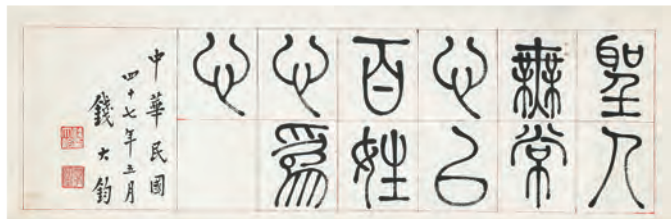 聖人
無常
心以
百姓
心為
心
中華民國
四十七年五月
錢大鈞